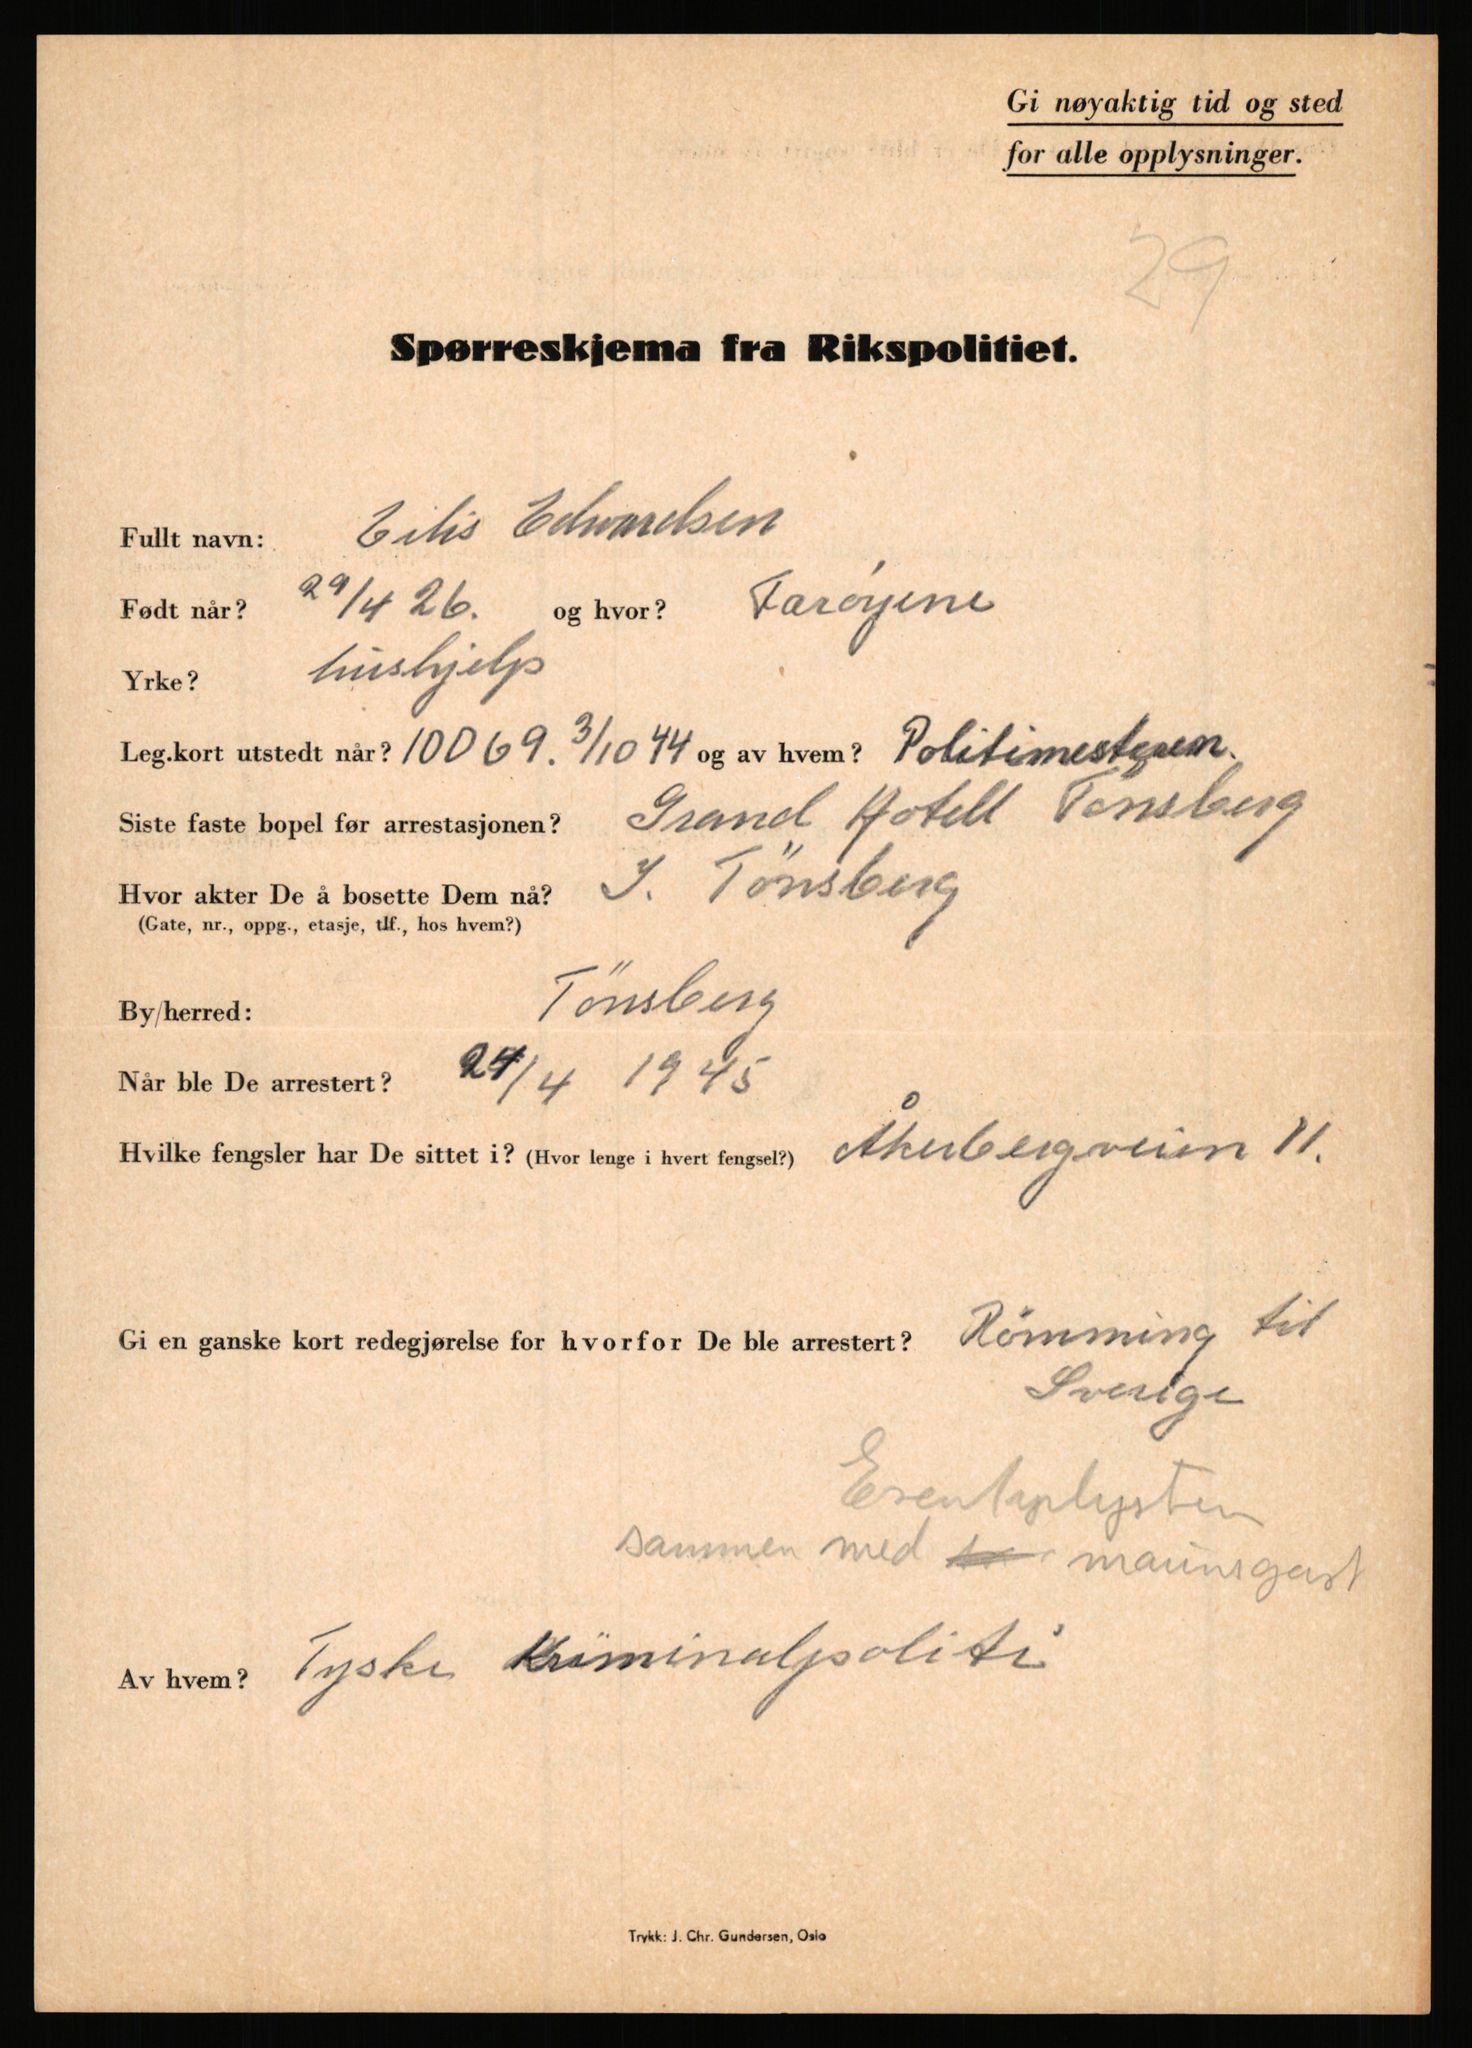 Gi nøyaktig tid og sted
for alle opplysninger.
29
Spørreskjema fra Rikspolitiet.
Fullt navn: Eilis Edvardsen
Født når? 29/4 26. og hvor? Færöyene
Yrke? hushjelp
Leg.kort utstedt når? 10069. 3/10 44 og av hvem? Politimesteren.
Siste faste bopel før arrestasjonen? Grand Hotell Tönsberg
Hvor akter De å bosette Dem nå? I. Tönsberg
(Gate, nr., oppg., etasje, tlf., hos hvem?)
By/herred: Tönsberg
Når ble De arrestert? 24/4 1945
Hvilke fengsler har De sittet i? (Hvor lenge i hvert fengsel?) Åkerbergveien 11.
Gi en ganske kort redegjørelse for hvorfor De ble arrestert? Römming til
Sverige
Eventyrlysten
sammen med maringast
Av hvem? Tyske Kriminalpoliti
Trykk: J. Chr. Gundersen, Oslo